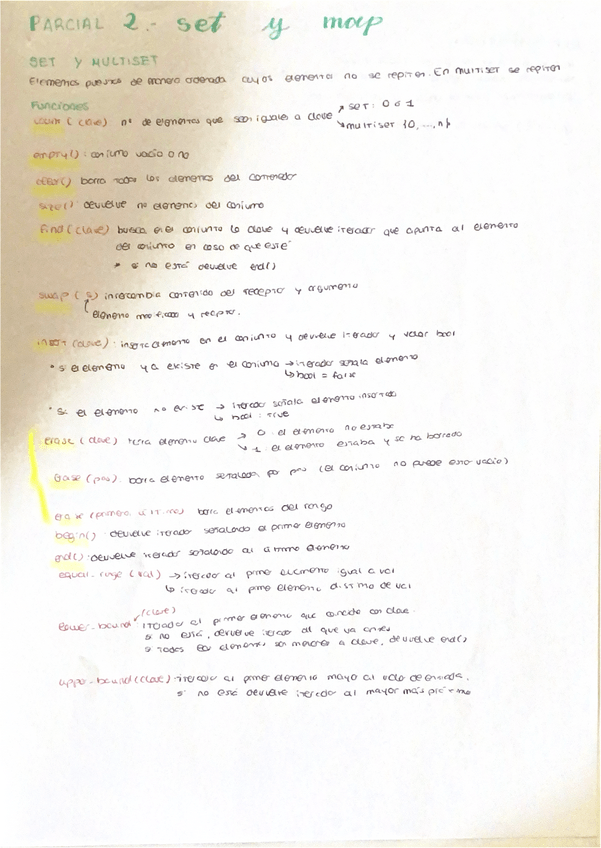 PARCIAL 2.- set y map
SET Y MULTISET
Elementos puestos de manera ordenada cuyos elementos no se repiten. En multiset se repiten
Funciones
count (clave) nº de elementos que sean iguales a clave → set: 0 ó 1
→ multiset {0, ..., n}
empty(): conjunto vacío o no
clear() borra todos los elementos del contenedor
size() devuelve no elementos del conjunto
find (clave) busca en el conjunto la clave y devuelve iterador que apunta al elemento
del conjunto en caso de que esté
* si no está devuelve end()
swap (s) intercambia contenido del receptor y argumento
elemento modificado y receptor.
insert (clave): inserta elemento en el conjunto y devuelve iterador y valor bool
* si el elemento ya existe en el conjunto → iterador señala elemento
↳ bool = false
* Si el elemento no existe → iterador señala elemento insertado
↳ bool: true
erase (clave) elemento clave → 0: el elemento no estaba
→ 1: el elemento estaba y se ha borrado
erase (pos) borra elemento señalado por pos (el conjunto no puede estar vacío)
erase (primero, último) borra elementos del rango
begin() devuelve iterador señalando al primer elemento
end(): devuelve iterador señalando al último elemento
equal_range (val) → iterador al primer elemento igual a val
↳ iterador al primer elemento distinto de val
lower_bound (clave) iterador al primer elemento que coincide con clave.
si no está, devuelve iterador al que va antes
si todos los elementos son menores a clave, devuelve end()
upper_bound (clave) iterador al primer elemento mayor al valor de entrada.
si no está devuelve iterador al mayor más próximo